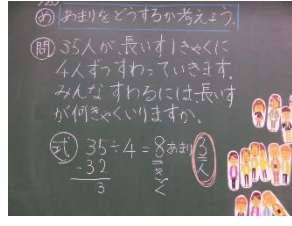 め あまりをどうするか考えよう。
問 35人が、長いす1きゃくに
4人ずつすわっていきます。
みんなすわるには、長いす
が何きゃくいりますか。
式 35÷4=8あまり3
-32 きゃく 人
3